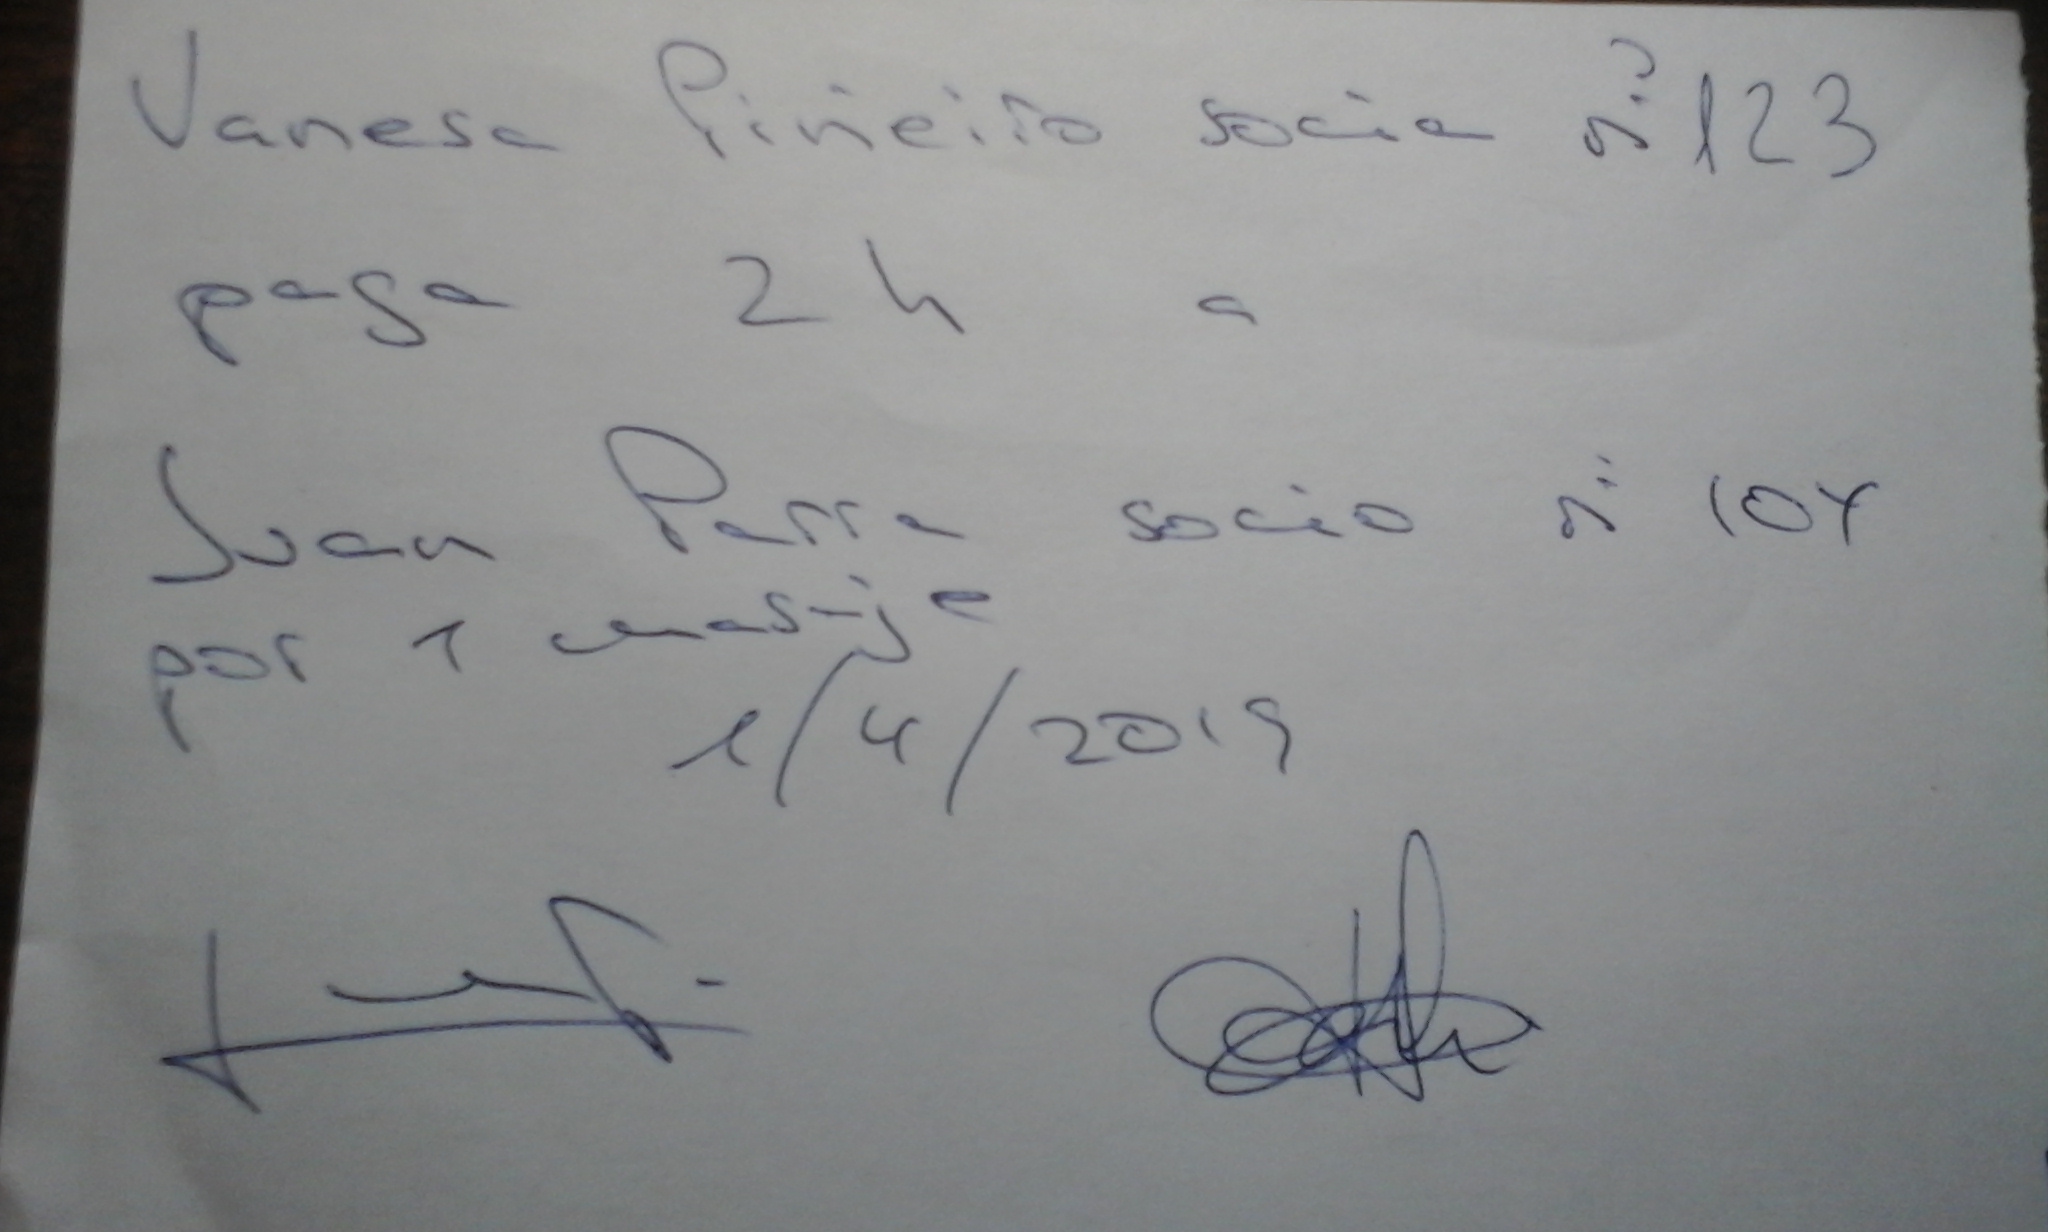 Vanesa Piñeiro socia nº 123
paga 2 h a
Juan Parra socio nº 104
por 1 masaje
1/4/2019